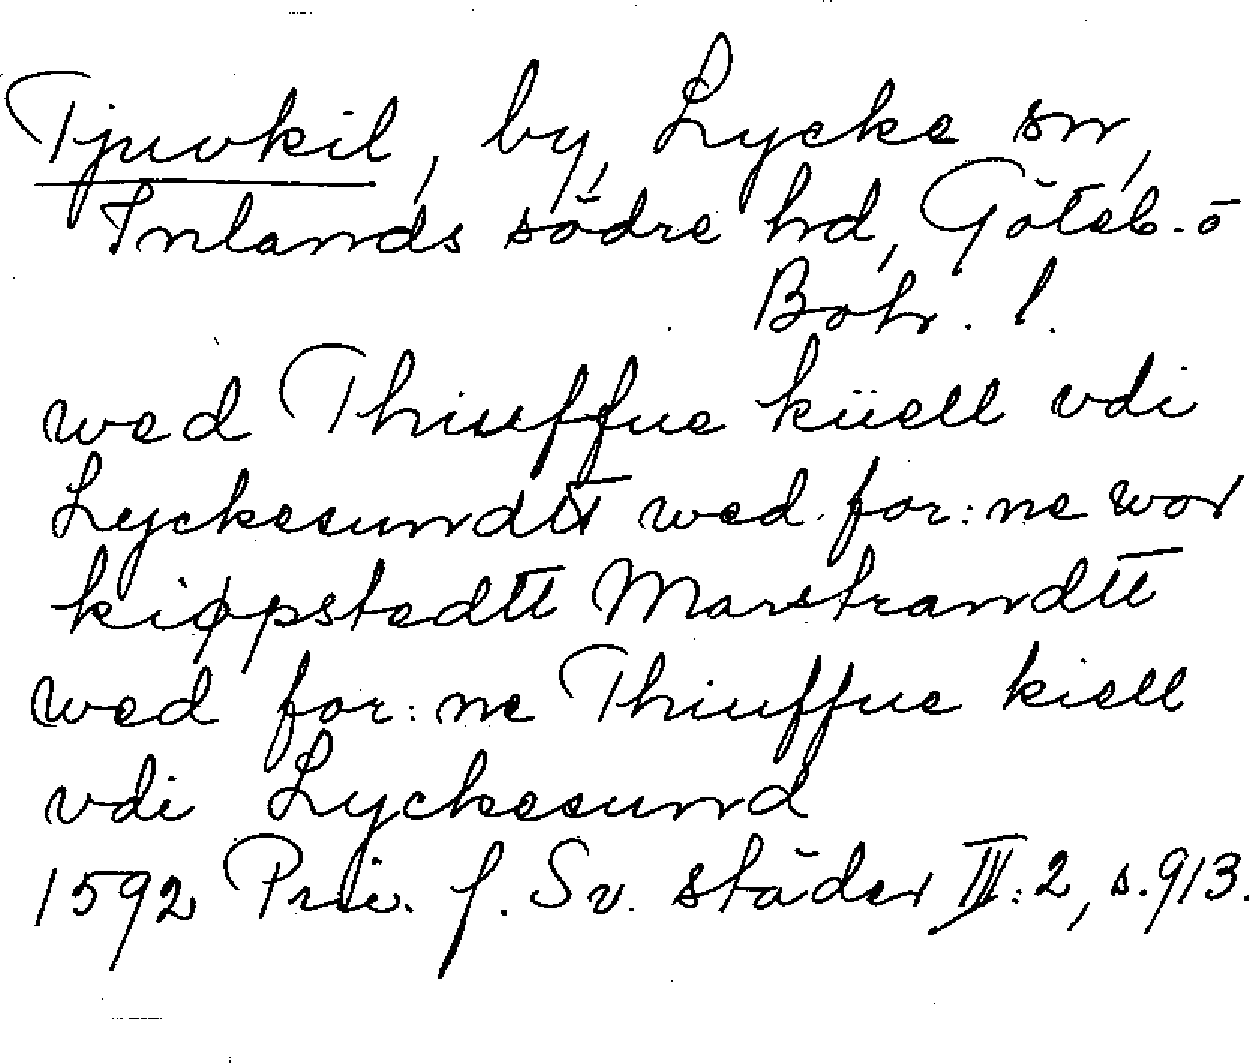 Tjuvkil, by, Lycke sn,
Inlands södre hd, Göteb. o
Boh. l.
wed Thiuffue küell vdi
Lyckesundtt wed for:ne wor
kiøpstedtt Marstrandtt
wed for:ne Thiuffue kiell
vdi Lyckesund
1592 Priv. f. Sv. städer III:2, s. 913.